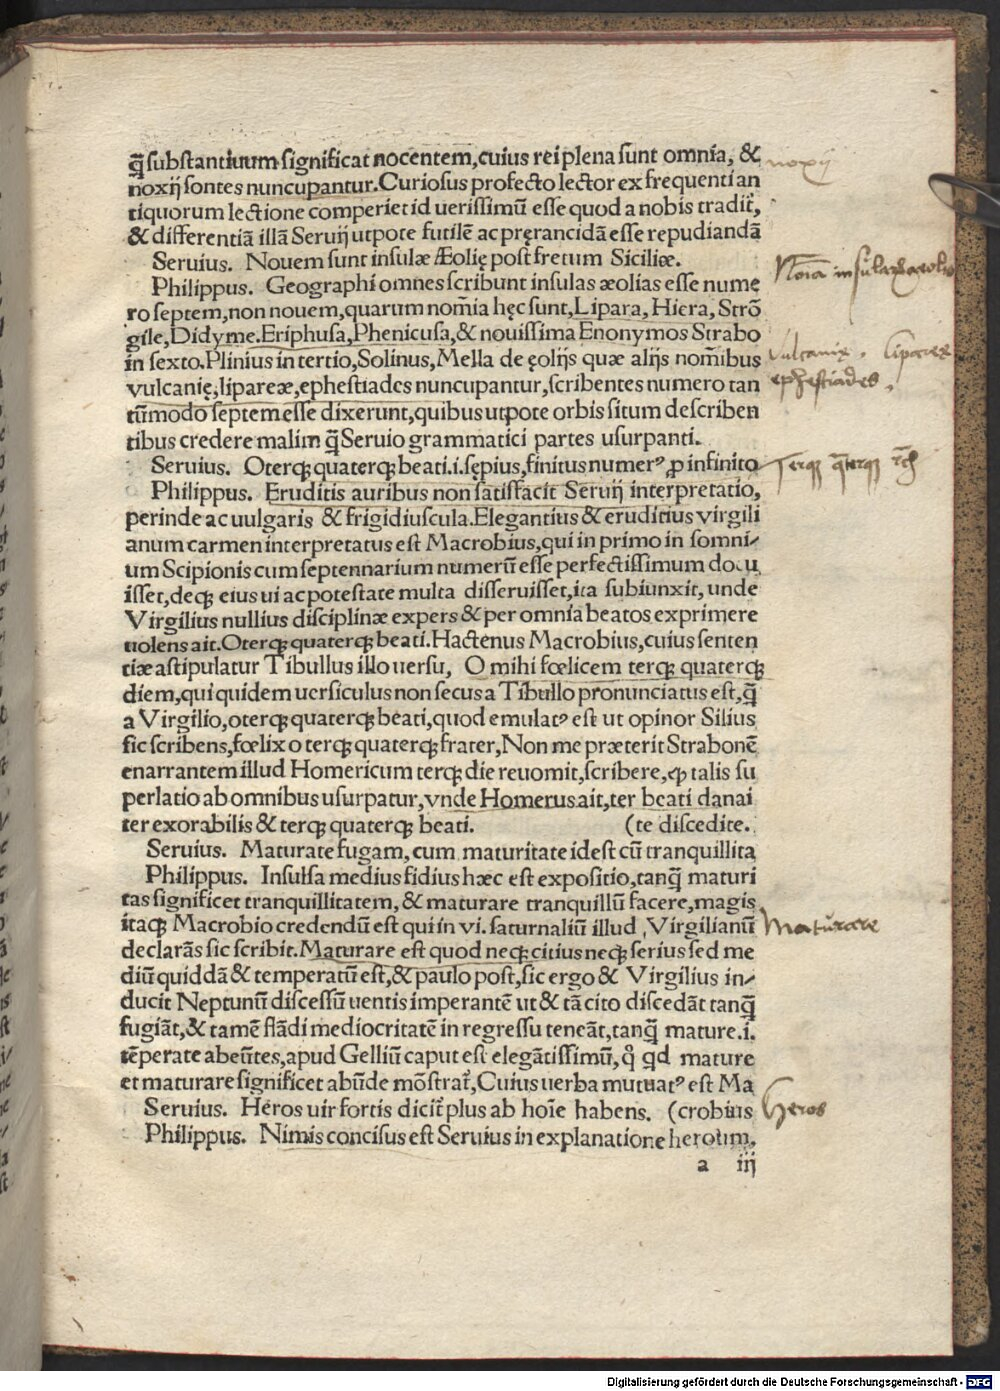 q̃ substantiuum significat nocentem, cuius rei plena sunt omnia, &
noxij sontes nuncupantur. Curiosus profecto lector ex frequenti an
tiquorum lectione comperiet id uerissimū esse quod a nobis tradit᷑,
& differentiā illā Seruij utpote futilē ac pręrancidā esse repudiandā
Seruius. Nouem sunt insulæ Æolię post fretum Siciliæ.
Philippus. Geographi omnes scribunt insulas æolias esse nume
ro septem, non nouem, quarum nom̄ia hęc sunt, Lipara, Hiera, Strō
gile, Didyme. Eriphusa, Phenicusa, & nouissima Enonymos Strabo
in sexto. Plinius in tertio, Solinus, Mella de ęolijs quæ alijs nom̄ibus
vulcanię, lipareæ, ephestiades nuncupantur, scribentes numero tan
tūmodo septem esse dixerunt, quibus utpote orbis situm describen
tibus credere malim q̃ Seruio grammatici partes usurpanti.
Seruius. Oterqꝫ quaterqꝫ beati .i. sępius, finitus numerꝰ ꝓ infinito
Philippus. Eruditis auribus non satisfacit Seruij interpretatio,
perinde ac uulgaris & frigidiuscula. Elegantius & eruditius virgili
anum carmen interpretatus est Macrobius, qui in primo in somni⸗
um Scipionis cum septennarium numerū esse perfectissimum docu
isset, deqꝫ eius ui ac potestate multa disseruisset, ita subiunxit, unde
Virgilius nullius disciplinæ expers & per omnia beatos exprimere
uolens ait. Oterqꝫ quaterqꝫ beati. Hactenus Macrobius, cuius senten
tiæ astipulatur Tibullus illo uersu, O mihi fœlicem terqꝫ quaterqꝫ
diem, qui quidem uersiculus non secus a Tibullo pronunciatus est, q̃
a Virgilio, oterqꝫ quaterqꝫ beati, quod emulatꝰ est ut opinor Silius
sic scribens, fœlix o terqꝫ quaterqꝫ frater, Non me præterit Strabonē
enarrantem illud Homericum terqꝫ die reuomit, scribere, ꝙ talis su
perlatio ab omnibus usurpatur, vnde Homerus ait, ter beati danai
ter exorabilis & terqꝫ quaterqꝫ beati. (te discedite.
Seruius. Maturate fugam, cum maturitate id est cū tranquillita
Philippus. Insulsa medius fidius hæc est expositio, tanq̃ maturi
tas significet tranquillitatem, & maturare tranquillū facere, magis
itaqꝫ Macrobio credendū est qui in vi. saturnaliū illud, Virgilianū
declarās sic scribit. Maturare est quod neqꝫ citius neqꝫ serius sed me
diū quiddā & temperatū est, & paulo post, sic ergo & Virgilius in⸗
ducit Neptunū discessū uentis imperantē ut & tā cito discedāt tanq̃
fugiāt, & tamē flādi mediocritatē in regressu teneāt, tanq̃ mature .i.
tēperate abeūtes, apud Gelliū caput est elegātissimū, q̊ qd mature
et maturare significet abūde mōstrat᷑, Cuius uerba mutuatꝰ est Ma
Seruius. Heros uir fortis dicit᷑ plus ab hoīe habens. (crobius
Philippus. Nimis concisus est Seruius in explanatione heroum,
a iij
noxij
insularū aeolia
Vulcanię. Lipareæ
ephestiades.
Terqꝫ quaterqꝫ
Maturare
Heros
Digitalisierung gefördert durch die Deutsche Forschungsgemeinschaft - DFG